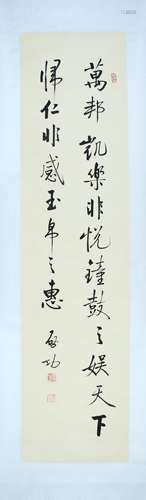 萬邦凱樂非悅鐘鼓之娛天下
歸仁非感玉帛之惠
啟功